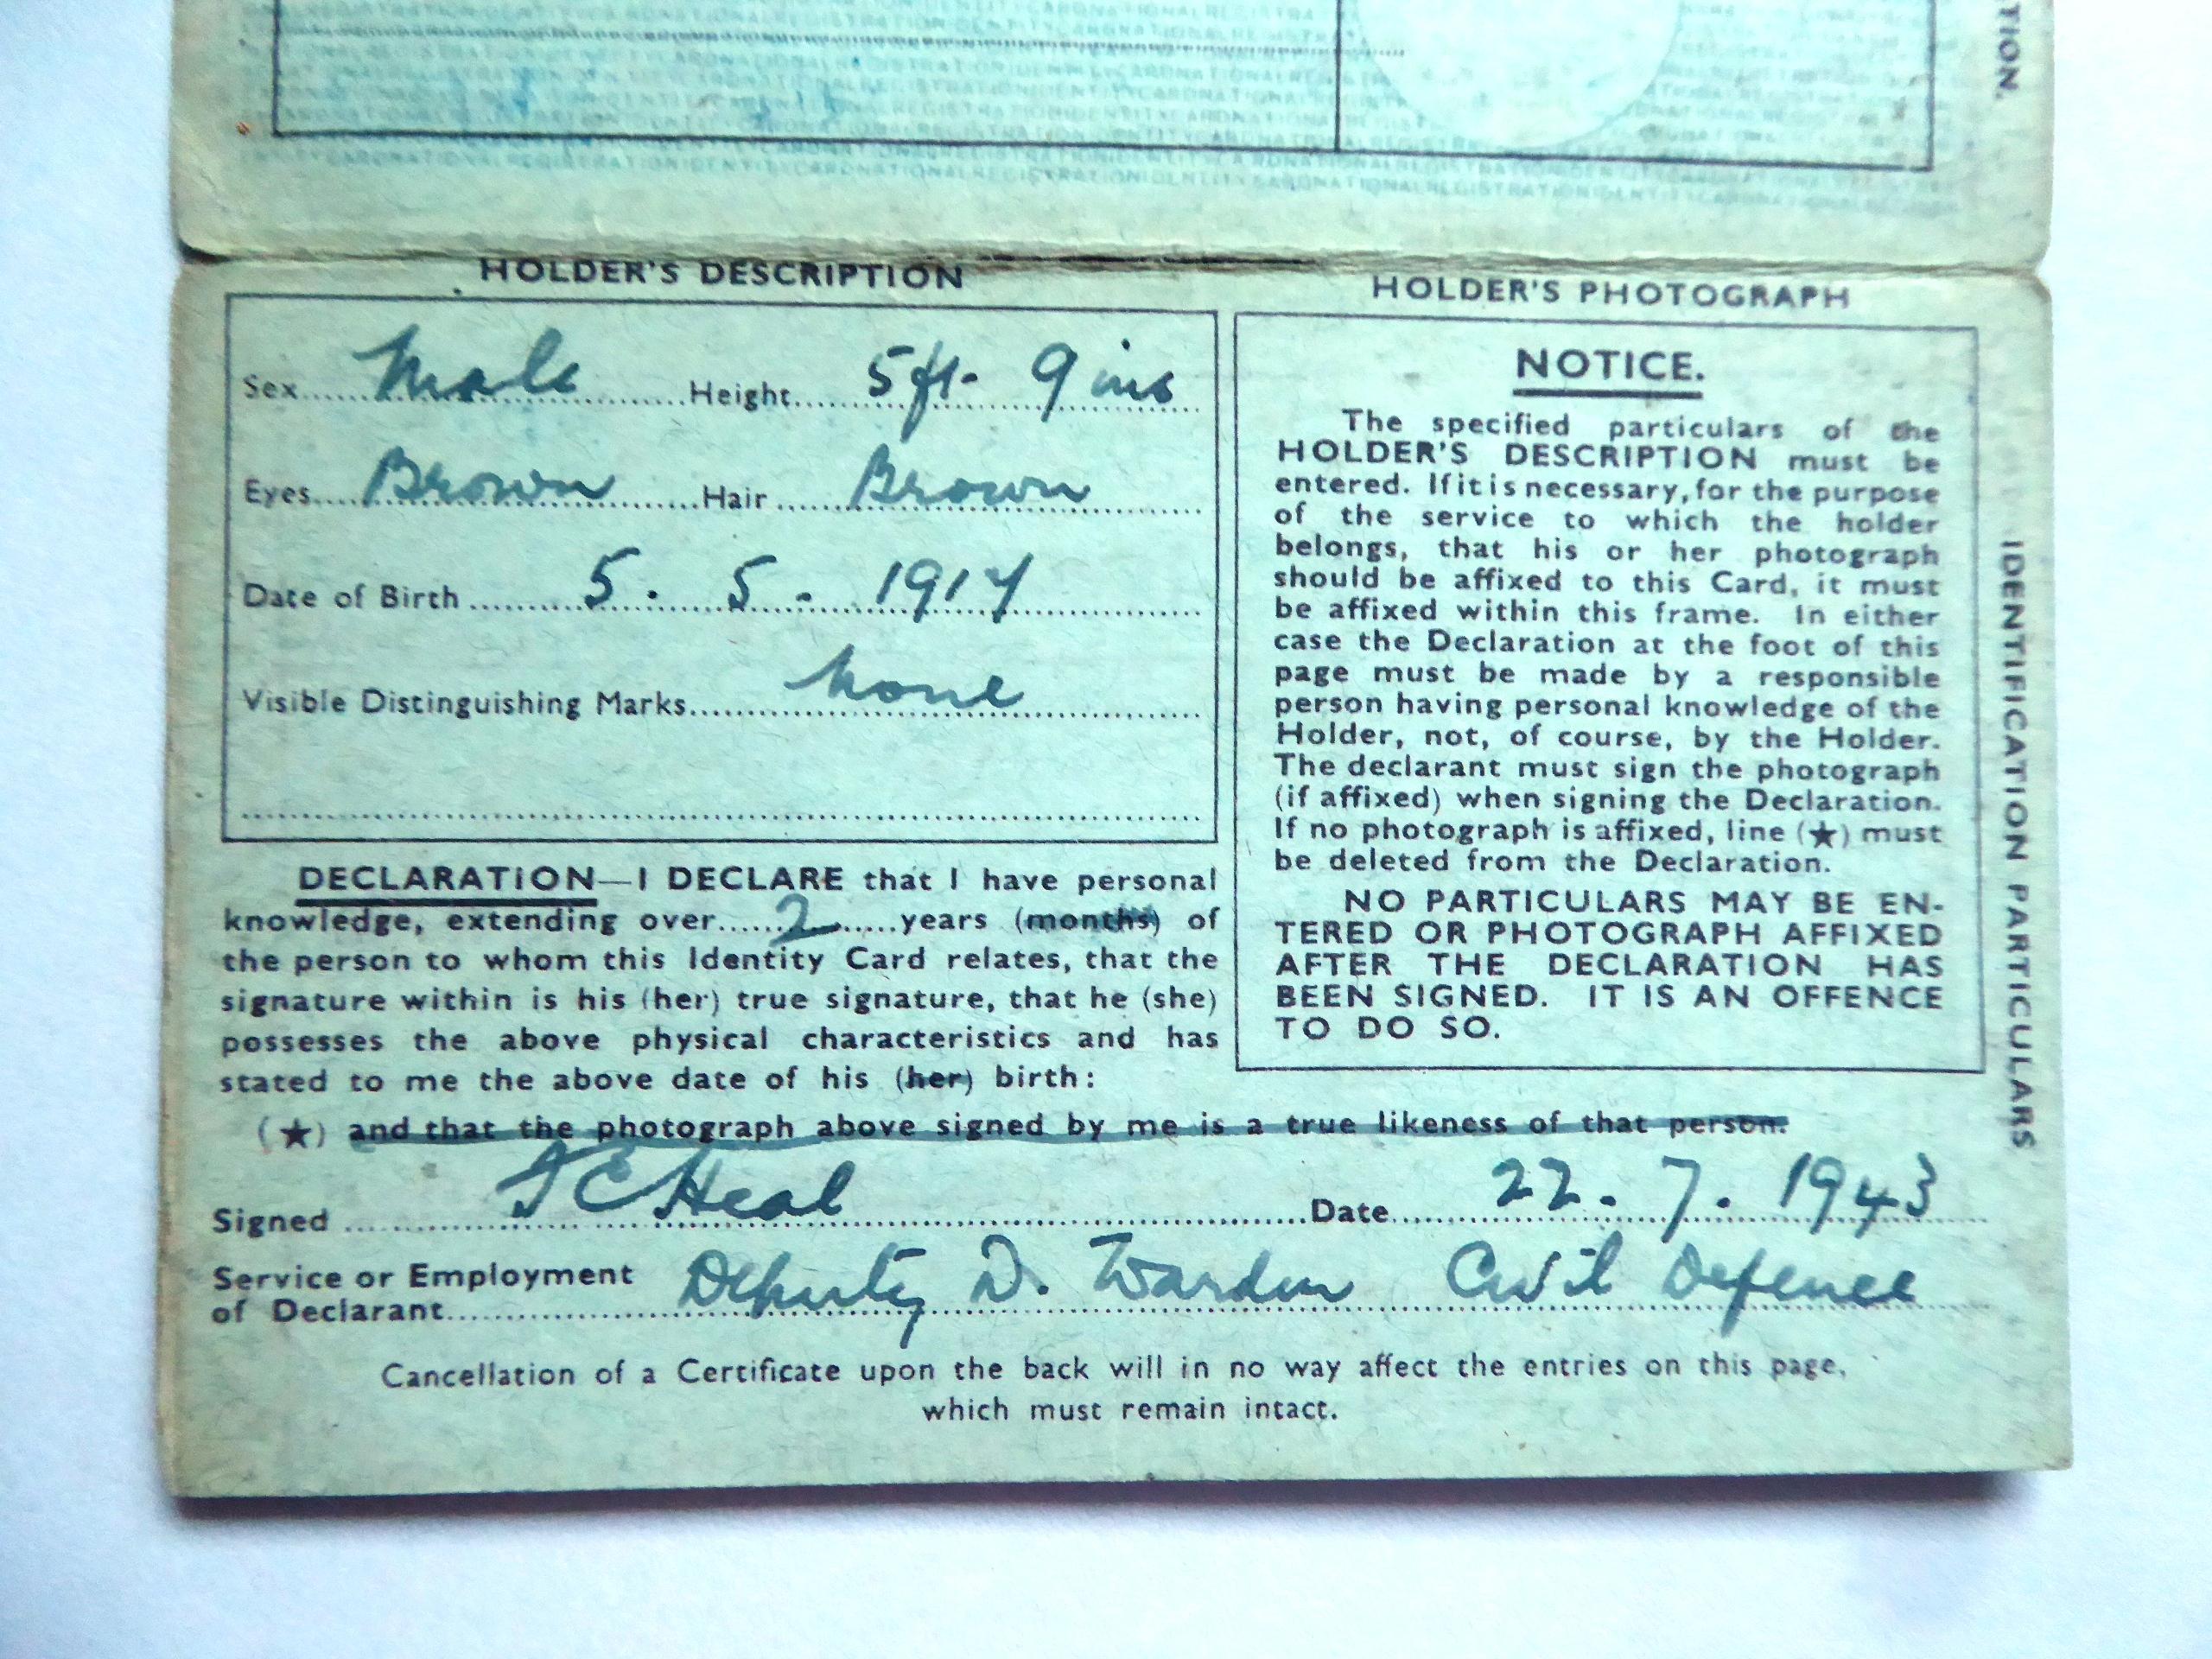 TION.
HOLDER'S DESCRIPTION
Sex Male Height 5 ft. 9 ins
Eyes Brown Hair Brown
Date of Birth 5. 5. 1917
Visible Distinguishing Marks None
HOLDER'S PHOTOGRAPH
NOTICE.
The specified particulars of the
HOLDER'S DESCRIPTION must be
entered. If it is necessary, for the purpose
of the service to which the holder
belongs, that his or her photograph
should be affixed to this Card, it must
be affixed within this frame. In either
case the Declaration at the foot of this
page must be made by a responsible
person having personal knowledge of the
Holder, not, of course, by the Holder.
The declarant must sign the photograph
(if affixed) when signing the Declaration.
If no photograph is affixed, line (★) must
be deleted from the Declaration.
NO PARTICULARS MAY BE EN-
TERED OR PHOTOGRAPH AFFIXED
AFTER THE DECLARATION HAS
BEEN SIGNED. IT IS AN OFFENCE
TO DO SO.
IDENTIFICATION PARTICULARS
DECLARATION—I DECLARE that I have personal
knowledge, extending over 2 years (months) of
the person to whom this Identity Card relates, that the
signature within is his (her) true signature, that he (she)
possesses the above physical characteristics and has
stated to me the above date of his (her) birth:
(★) and that the photograph above signed by me is a true likeness of that person.
Signed C Heal Date 22. 7. 1943
Service or Employment
of Declarant Deputy D. Warden Civil Defence
Cancellation of a Certificate upon the back will in no way affect the entries on this page,
which must remain intact.